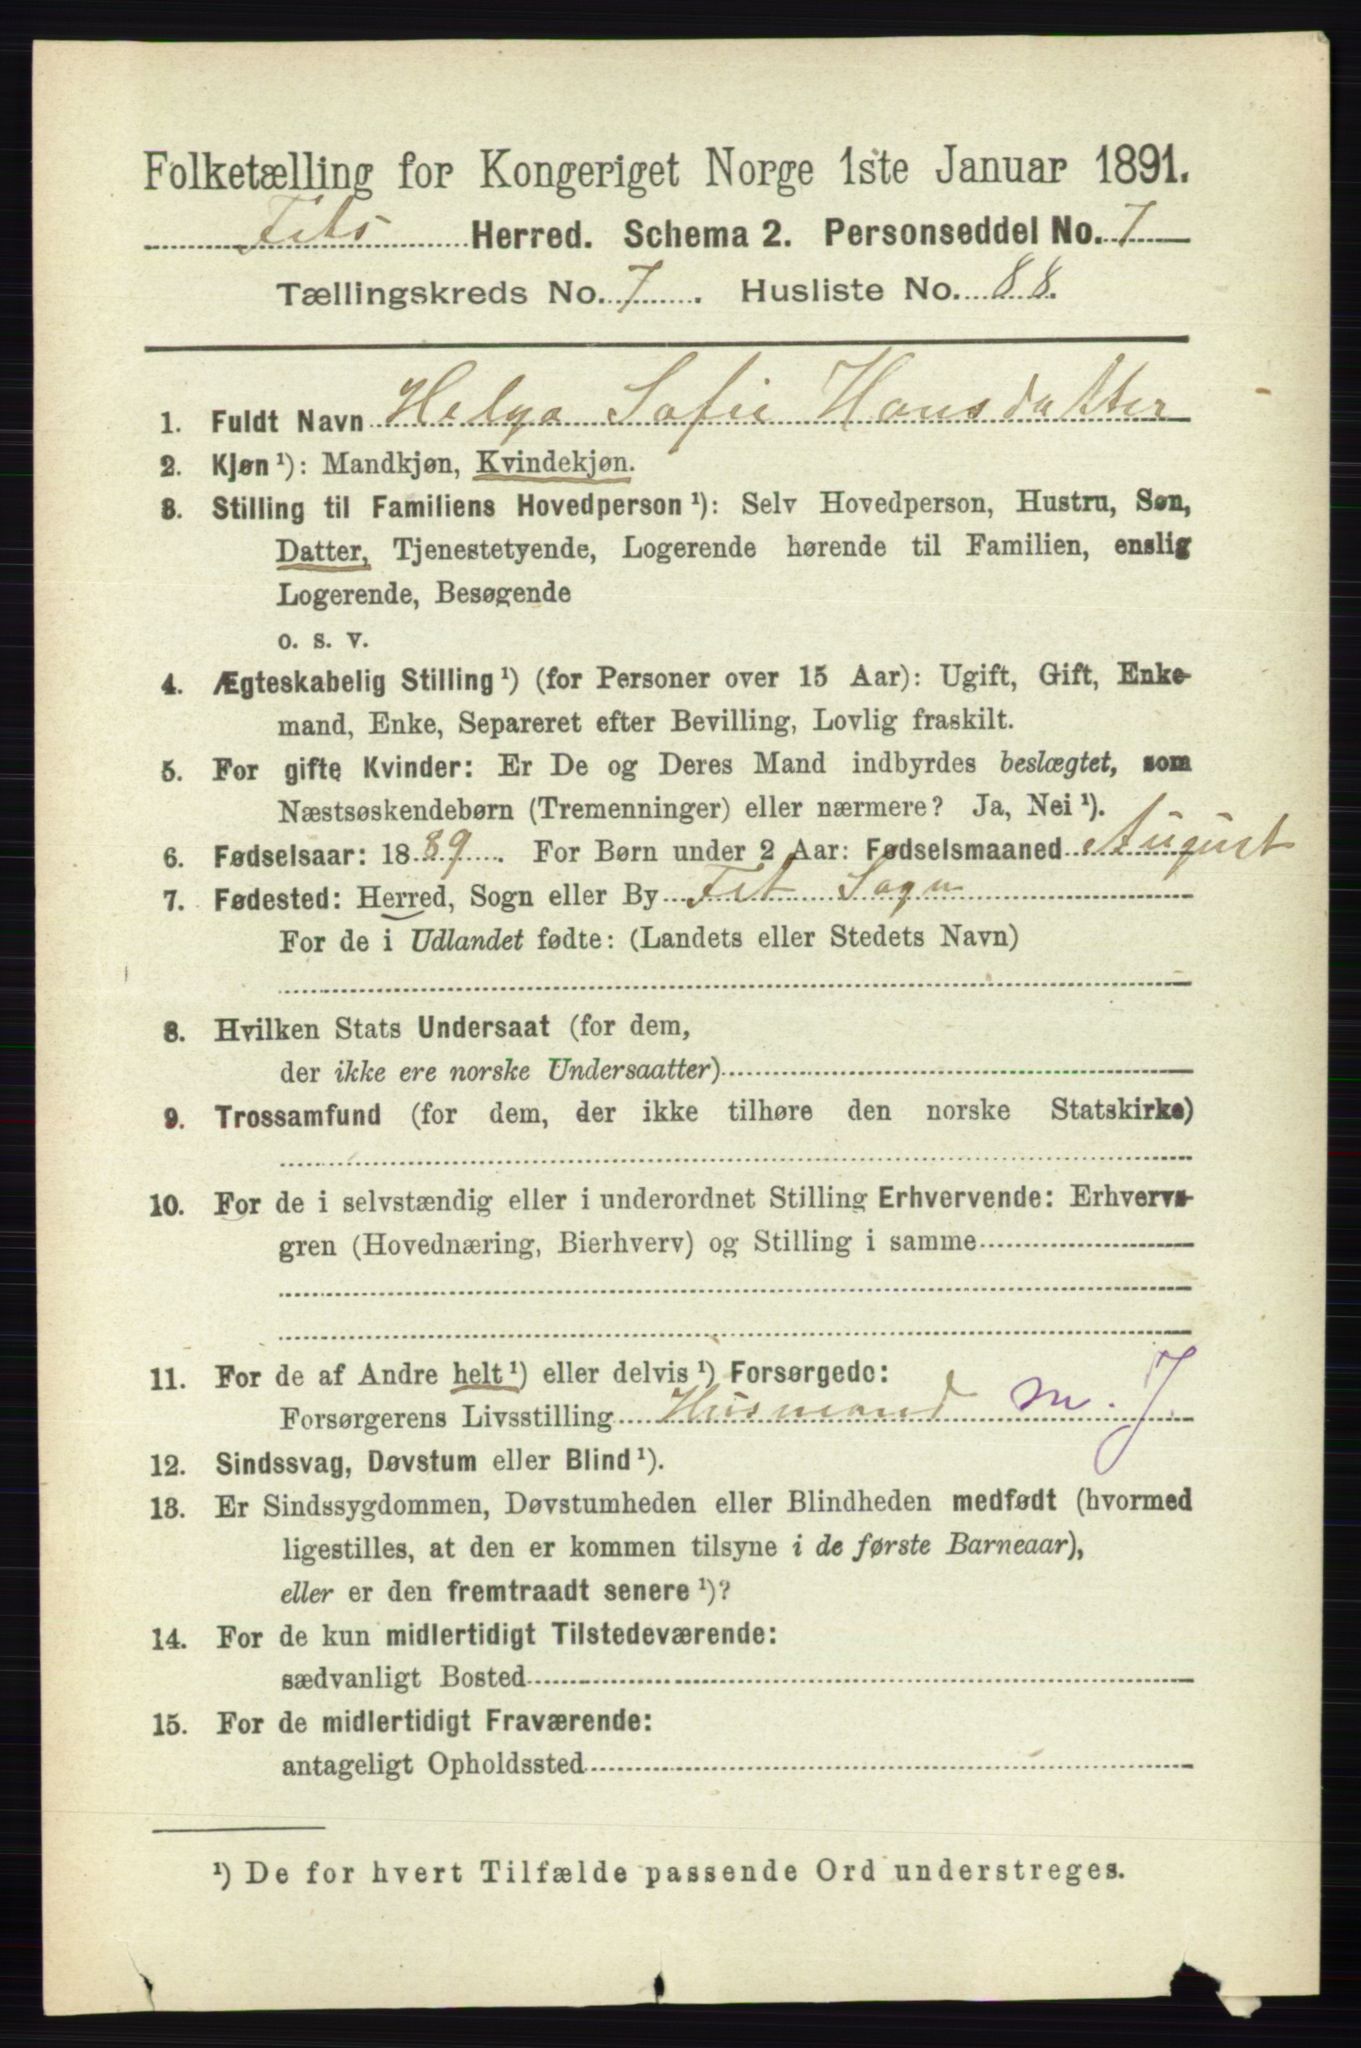 Folketælling for Kongeriget Norge 1ste Januar 1891.
Fets Herred. Schema 2. Personseddel No. 7
Tællingskreds No. 7. Husliste No. 88.
1. Fuldt Navn Helga Sofie Hansdatter
2. Kjøn ¹): Mandkjøn, Kvindekjøn.
3. Stilling til Familiens Hovedperson ¹): Selv Hovedperson, Hustru, Søn,
Datter, Tjenestetyende, Logerende hørende til Familien, enslig
Logerende, Besøgende
o. s. v.
4. Ægteskabelig Stilling ¹) (for Personer over 15 Aar): Ugift, Gift, Enke-
mand, Enke, Separeret efter Bevilling, Lovlig fraskilt.
5. For gifte Kvinder: Er De og Deres Mand indbyrdes beslægtet, som
Næstsøskendebørn (Tremenninger) eller nærmere? Ja, Nei ¹).
6. Fødselsaar: 1889. For Børn under 2 Aar: Fødselsmaaned August
7. Fødested: Herred, Sogn eller By Fet Sogn
For de i Udlandet fødte: (Landets eller Stedets Navn)
8. Hvilken Stats Undersaat (for dem,
der ikke ere norske Undersaatter)
9. Trossamfund (for dem, der ikke tilhøre den norske Statskirke)
10. For de i selvstændig eller i underordnet Stilling Erhvervende: Erhvervs-
gren (Hovednæring, Bierhverv) og Stilling i samme
11. For de af Andre helt ¹) eller delvis ¹) Forsørgede:
Forsørgerens Livsstilling Husmand m. J.
12. Sindssvag, Døvstum eller Blind ¹).
13. Er Sindssygdommen, Døvstumheden eller Blindheden medfødt (hvormed
ligestilles, at den er kommen tilsyne i de første Barneaar),
eller er den fremtraadt senere ¹)?
14. For de kun midlertidigt Tilstedeværende:
sædvanligt Bosted
15. For de midlertidigt Fraværende:
antageligt Opholdssted
¹) De for hvert Tilfælde passende Ord understreges.